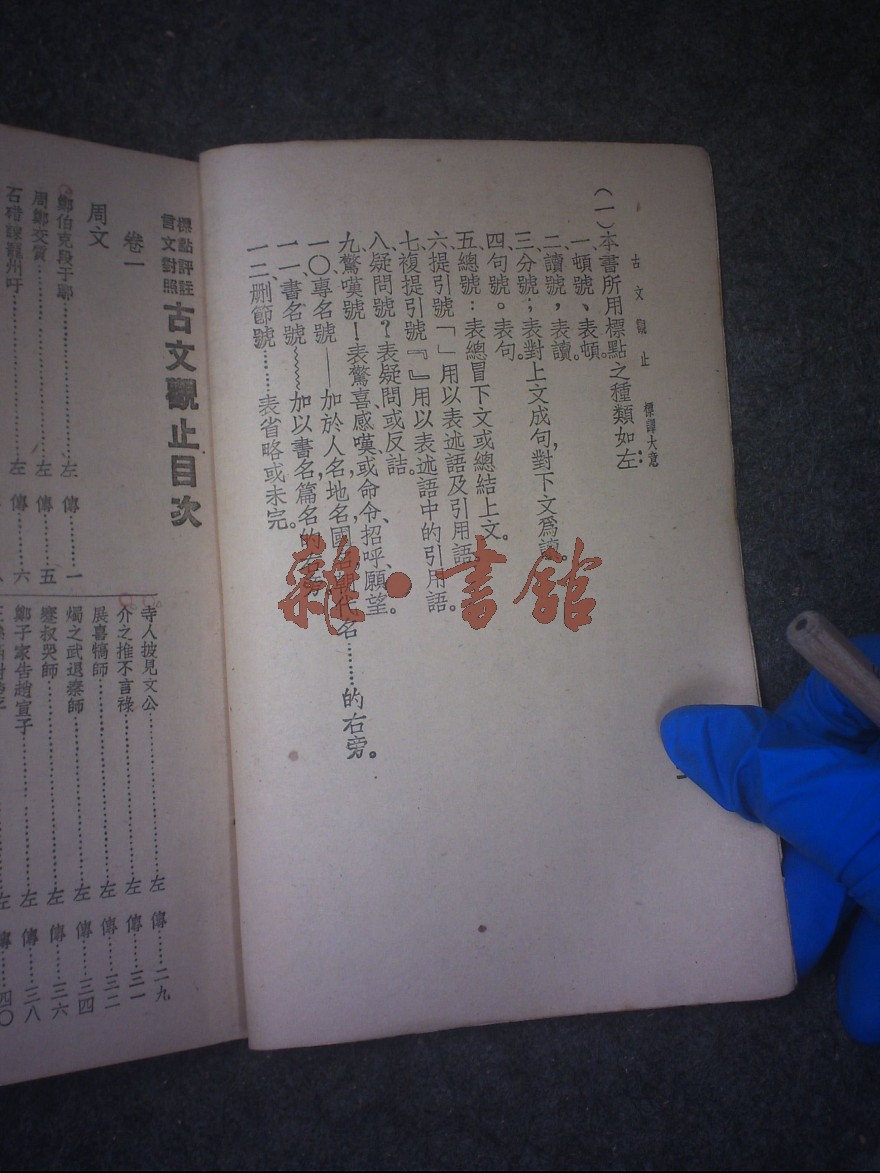 古文觀止 標譯大意
(一)本書所用標點之種類如左:
一、頓號、表頓。
二、讀號,表讀。
三、分號;表對上文成句,對下文爲讀。
四、句號。表句。
五、總號:表總冒下文或總結上文。
六、提引號「」用以表述語及引用語。
七、複提引號『』用以表述語中的引用語。
八、疑問號?表疑問或反詰。
九、驚嘆號!表驚喜、感嘆、或命令、招呼、願望。
一〇、專名號——加於人名、地名、國名、朝代名……的右旁。
一一、書名號﹏﹏加以書名、篇名的右旁。
一二、刪節號……表省略或未完。
雜·書館
標點評註
言文對照
古文觀止目次
卷一
周文
鄭伯克段于鄢……左傳 一
周鄭交質……左傳……五
石碏諫寵州吁……左傳……六
寺人披見文公……左傳……二九
介之推不言祿……左傳……三一
展喜犒師……左傳……三二
燭之武退秦師……左傳……三四
蹇叔哭師……左傳……三六
鄭子家告趙宣子……左傳……三八
四〇